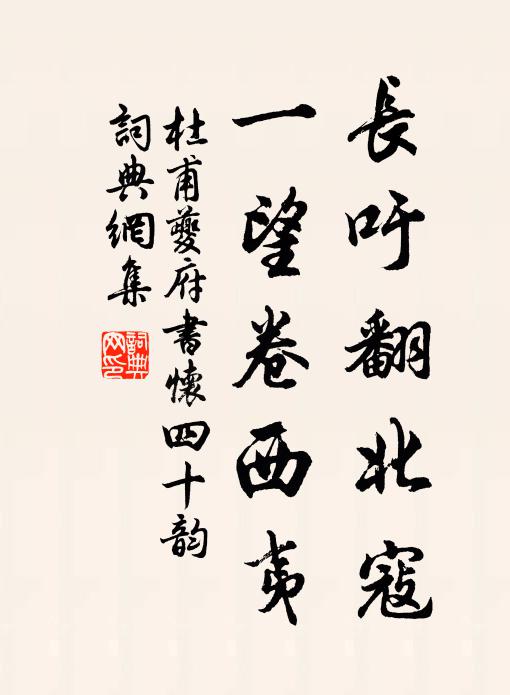 長吁翻北寇
一望卷西夷
杜甫夔府書懷四十韵
詞典網集
詞典网印